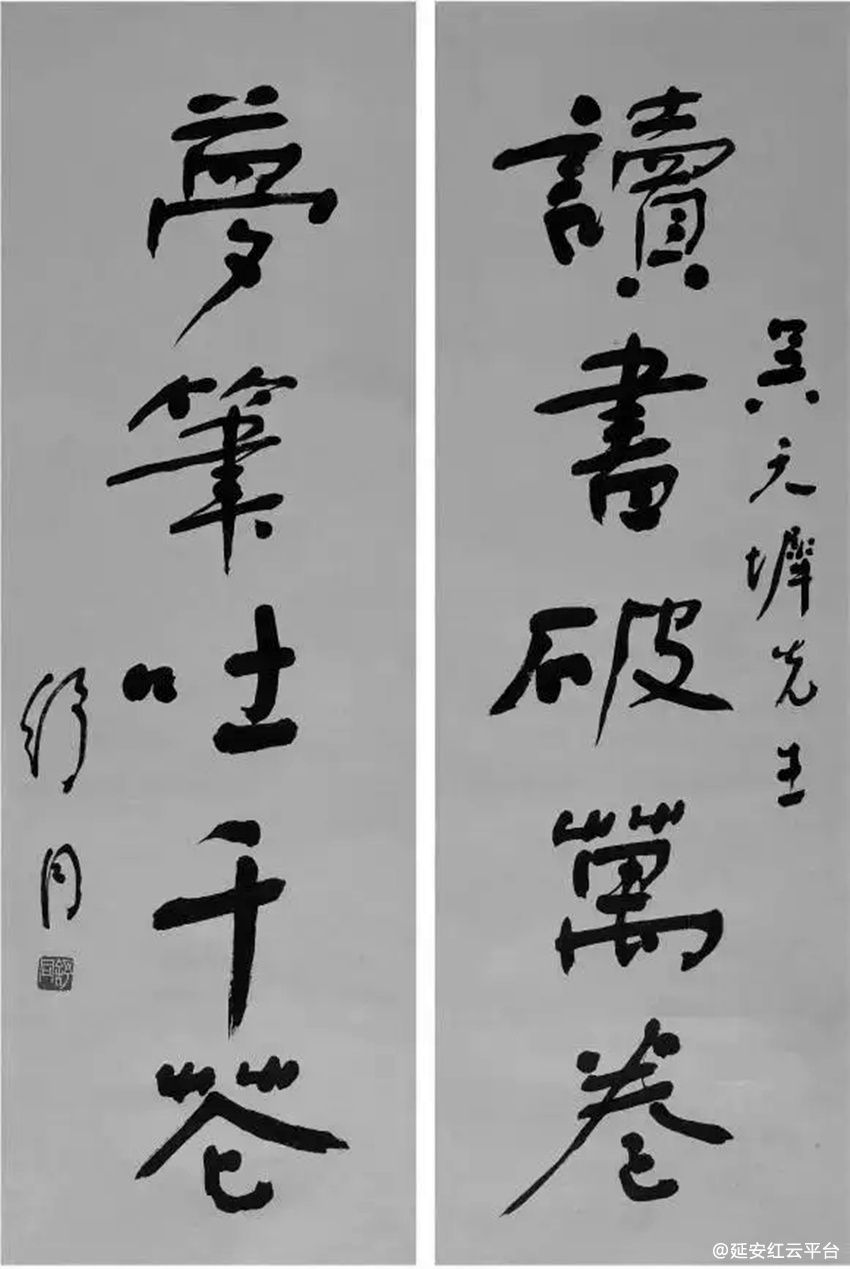 吳天墀先生
讀書破萬卷
夢筆吐千花
舒同
舒同
@延安红云平台